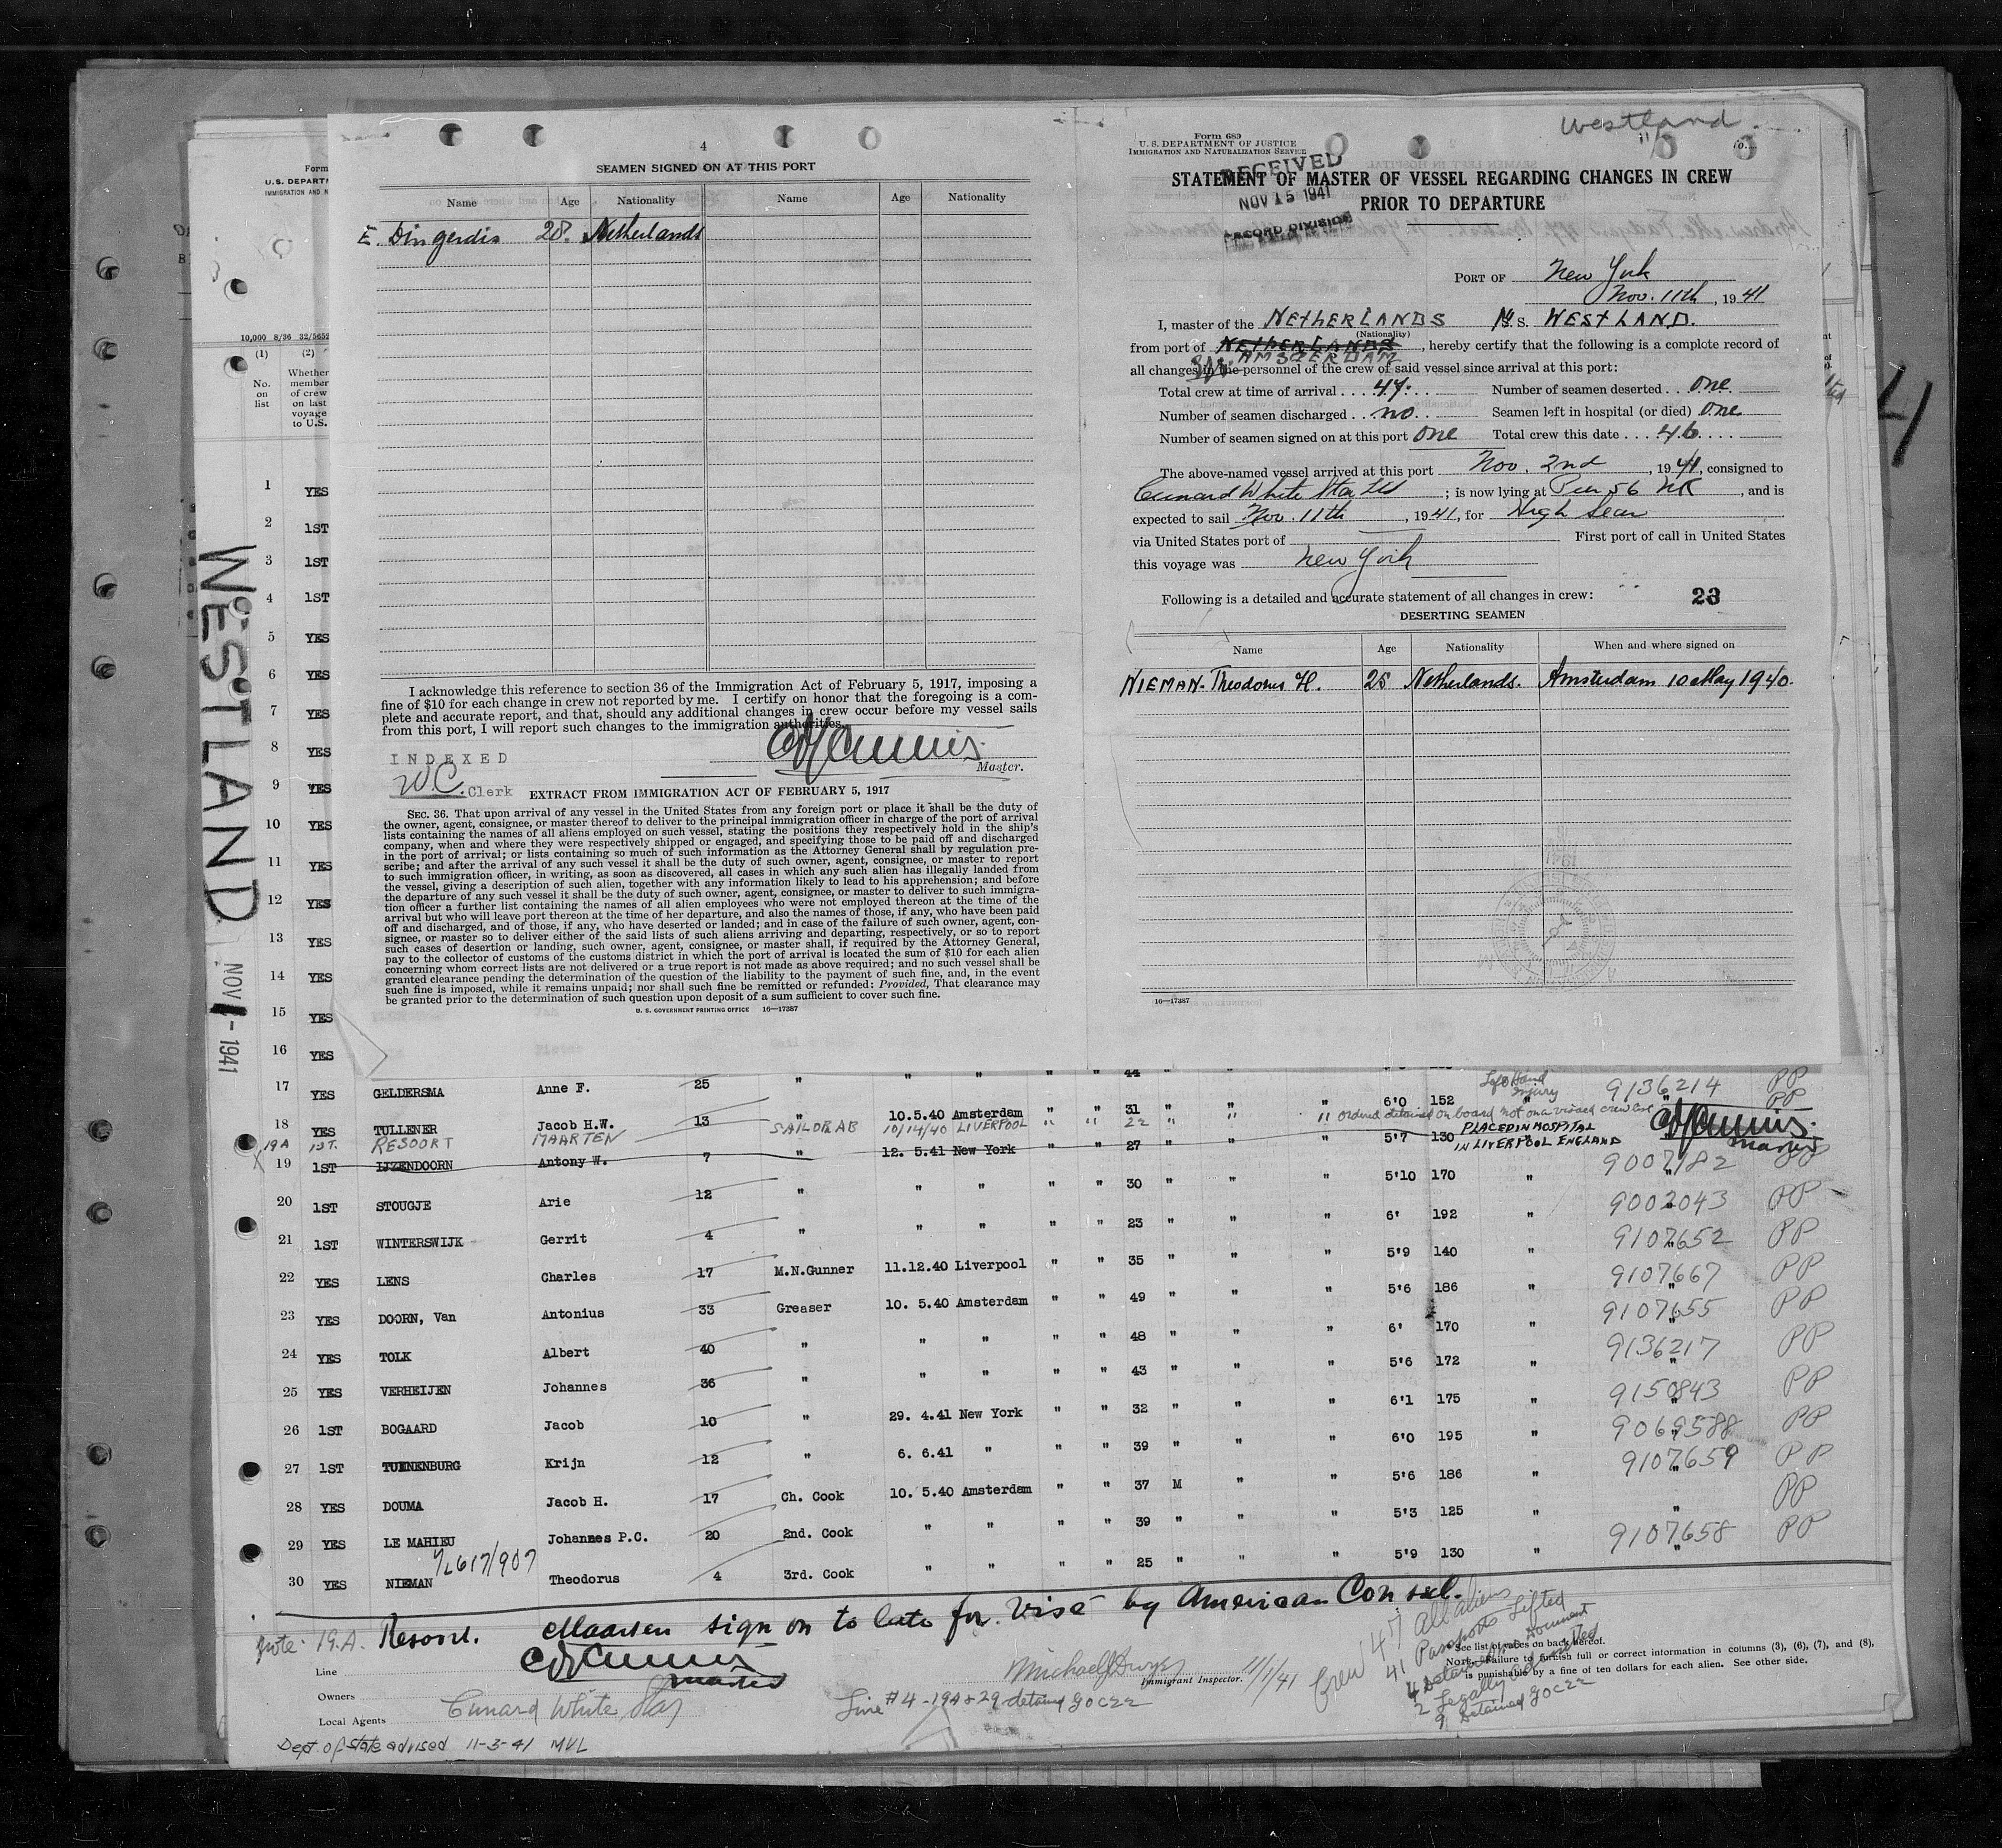 4
SEAMEN SIGNED ON AT THIS PORT
Name Age Nationality Name Age Nationality
E. Dingerdis 28. Netherlands
I acknowledge this reference to section 36 of the Immigration Act of February 5, 1917, imposing a
fine of $10 for each change in crew not reported by me. I certify on honor that the foregoing is a com-
plete and accurate report, and that, should any additional changes in crew occur before my vessel sails
from this port, I will report such changes to the immigration authorities.
INDEXED
Master.
W.C. Clerk
EXTRACT FROM IMMIGRATION ACT OF FEBRUARY 5, 1917
SEC. 36. That upon arrival of any vessel in the United States from any foreign port or place it shall be the duty of
the owner, agent, consignee, or master thereof to deliver to the principal immigration officer in charge of the port of arrival
lists containing the names of all aliens employed on such vessel, stating the positions they respectively hold in the ship's
company, when and where they were respectively shipped or engaged, and specifying those to be paid off and discharged
in the port of arrival; or lists containing so much of such information as the Attorney General shall by regulation pre-
scribe; and after the arrival of any such vessel it shall be the duty of such owner, agent, consignee, or master to report
to such immigration officer, in writing, as soon as discovered, all cases in which any such alien has illegally landed from
the vessel, giving a description of such alien, together with any information likely to lead to his apprehension; and before
the departure of any such vessel it shall be the duty of such owner, agent, consignee, or master to deliver to such immigra-
tion officer a further list containing the names of all alien employees who were not employed thereon at the time of the
arrival but who will leave port thereon at the time of her departure, and also the names of those, if any, who have been paid
off and discharged, and of those, if any, who have deserted or landed; and in case of the failure of such owner, agent, con-
signee, or master so to deliver either of the said lists of such aliens arriving and departing, respectively, or so to report
such cases of desertion or landing, such owner, agent, consignee, or master shall, if required by the Attorney General,
pay to the collector of customs of the customs district in which the port of arrival is located the sum of $10 for each alien
concerning whom correct lists are not delivered or a true report is not made as above required; and no such vessel shall be
granted clearance pending the determination of the question of the liability to the payment of such fine, and, in the event
such fine is imposed, while it remains unpaid; nor shall such fine be remitted or refunded: Provided, That clearance may
be granted prior to the determination of such question upon deposit of a sum sufficient to cover such fine.
U. S. GOVERNMENT PRINTING OFFICE 16—17387
Westland
Form 689
U. S. DEPARTMENT OF JUSTICE
IMMIGRATION AND NATURALIZATION SERVICE
RECEIVED
NOV 15 1941
RECORD DIVISION
STATEMENT OF MASTER OF VESSEL REGARDING CHANGES IN CREW
PRIOR TO DEPARTURE
PORT OF New York
Nov. 11th, 1941
I, master of the NETHERLANDS M. S. WESTLAND.
(Nationality)
from port of NETHERLANDS, hereby certify that the following is a complete record of
AMSTERDAM
all changes in the personnel of the crew of said vessel since arrival at this port:
Total crew at time of arrival 47. Number of seamen deserted one
Number of seamen discharged no Seamen left in hospital (or died) one
Number of seamen signed on at this port one Total crew this date 46
The above-named vessel arrived at this port Nov. 2nd, 1941, consigned to
Cunard White Star Ltd; is now lying at Pier 56 NR, and is
expected to sail Nov. 11th, 1941, for High Seas
via United States port of First port of call in United States
this voyage was New York
Following is a detailed and accurate statement of all changes in crew: 23
DESERTING SEAMEN
Name Age Nationality When and where signed on
NIEMAN. Theodorus H. 25 Netherlands. Amsterdam 10 May 1940.
16—17387
4
Form
U.S. DEPART
IMMIGRATION AND N
10,000 8/36 32/5652
(1) (2)
No. on list
Whether member of crew on last voyage to U.S.
WESTLAND
NOV 1 - 1941
1 YES
2 1ST
3 1ST
4 1ST
5 YES
6 YES
7 YES
8 YES
9 YES
10 YES
11 YES
12 YES
13 YES
14 YES
15 YES
16 YES
17 YES GELDERSMA Anne F. 25 " " " " " 44 "
Left Hand Injury
18 YES TULLENER Jacob H.W. 13 " 10.5.40 Amsterdam " " 31 " " " 6'0 152 " 9136214 PP
19A 1ST. RESOORT MAARTEN SAILOR AB 10/14/40 LIVERPOOL " " 22 " " " ordered detained on board not on a visaed crew list PP
PLACED IN HOSPITAL
IN LIVERPOOL ENGLAND
Master
19 1ST IJZENDOORN Antony W. 7 " 12. 5.41 New York " " 27 " " " 5'7 130
20 1ST STOUGJE Arie 12 " " " " " 30 " " " 5'10 170 " 9007182 PP
21 1ST WINTERSWIJK Gerrit 4 " " " " " 23 " " " 6' 192 " 9002043 PP
22 YES LENS Charles 17 M.N.Gunner 11.12.40 Liverpool " " 35 " " " 5'9 140 " 9107652 PP
23 YES DOORN, Van Antonius 33 Greaser 10. 5.40 Amsterdam " " 49 " " " 5'6 186 " 9107667 PP
24 YES TOLK Albert 40 " " " " " 48 " " " 6' 170 " 9107655 PP
25 YES VERHEIJEN Johannes 36 " " " " " 43 " " " 5'6 172 " 9136217 PP
26 1ST BOGAARD Jacob 10 " 29. 4.41 New York " " 32 " " " 6'1 175 " 9150843 PP
27 1ST TUENENBURG Krijn 12 " 6. 6.41 " " " 39 " " " 6'0 195 " 9069588 PP
28 YES DOUMA Jacob H. 17 Ch. Cook 10. 5.40 Amsterdam " " 37 M " " 5'6 186 " 9107659 PP
29 YES LE MAHIEU Johannes P.C. 20 2nd. Cook " " " " 39 " " " 5'3 125 " PP
30 YES NIEMAN Theodorus 4 3rd. Cook " " " " 25 " " " 5'9 130 " 9107658 PP
note: 19.A. Resoort. Maarten sign on to late for Visé by American Consul.
Master
Line
Owners
Local Agents Cunard White Star
Michael J Dwyer
Immigrant Inspector. 11/1/41
Line #4 - 19A & 29 detained GOC22
Crew 47 All aliens
41 Passports Lifted
2 Legally admitted
9 Detained GOC22
See list of races on back hereof.
NOTE.—Failure to furnish full or correct information in columns (3), (6), (7), and (8),
is punishable by a fine of ten dollars for each alien. See other side.
Dept. of state advised 11-3-41 MVL